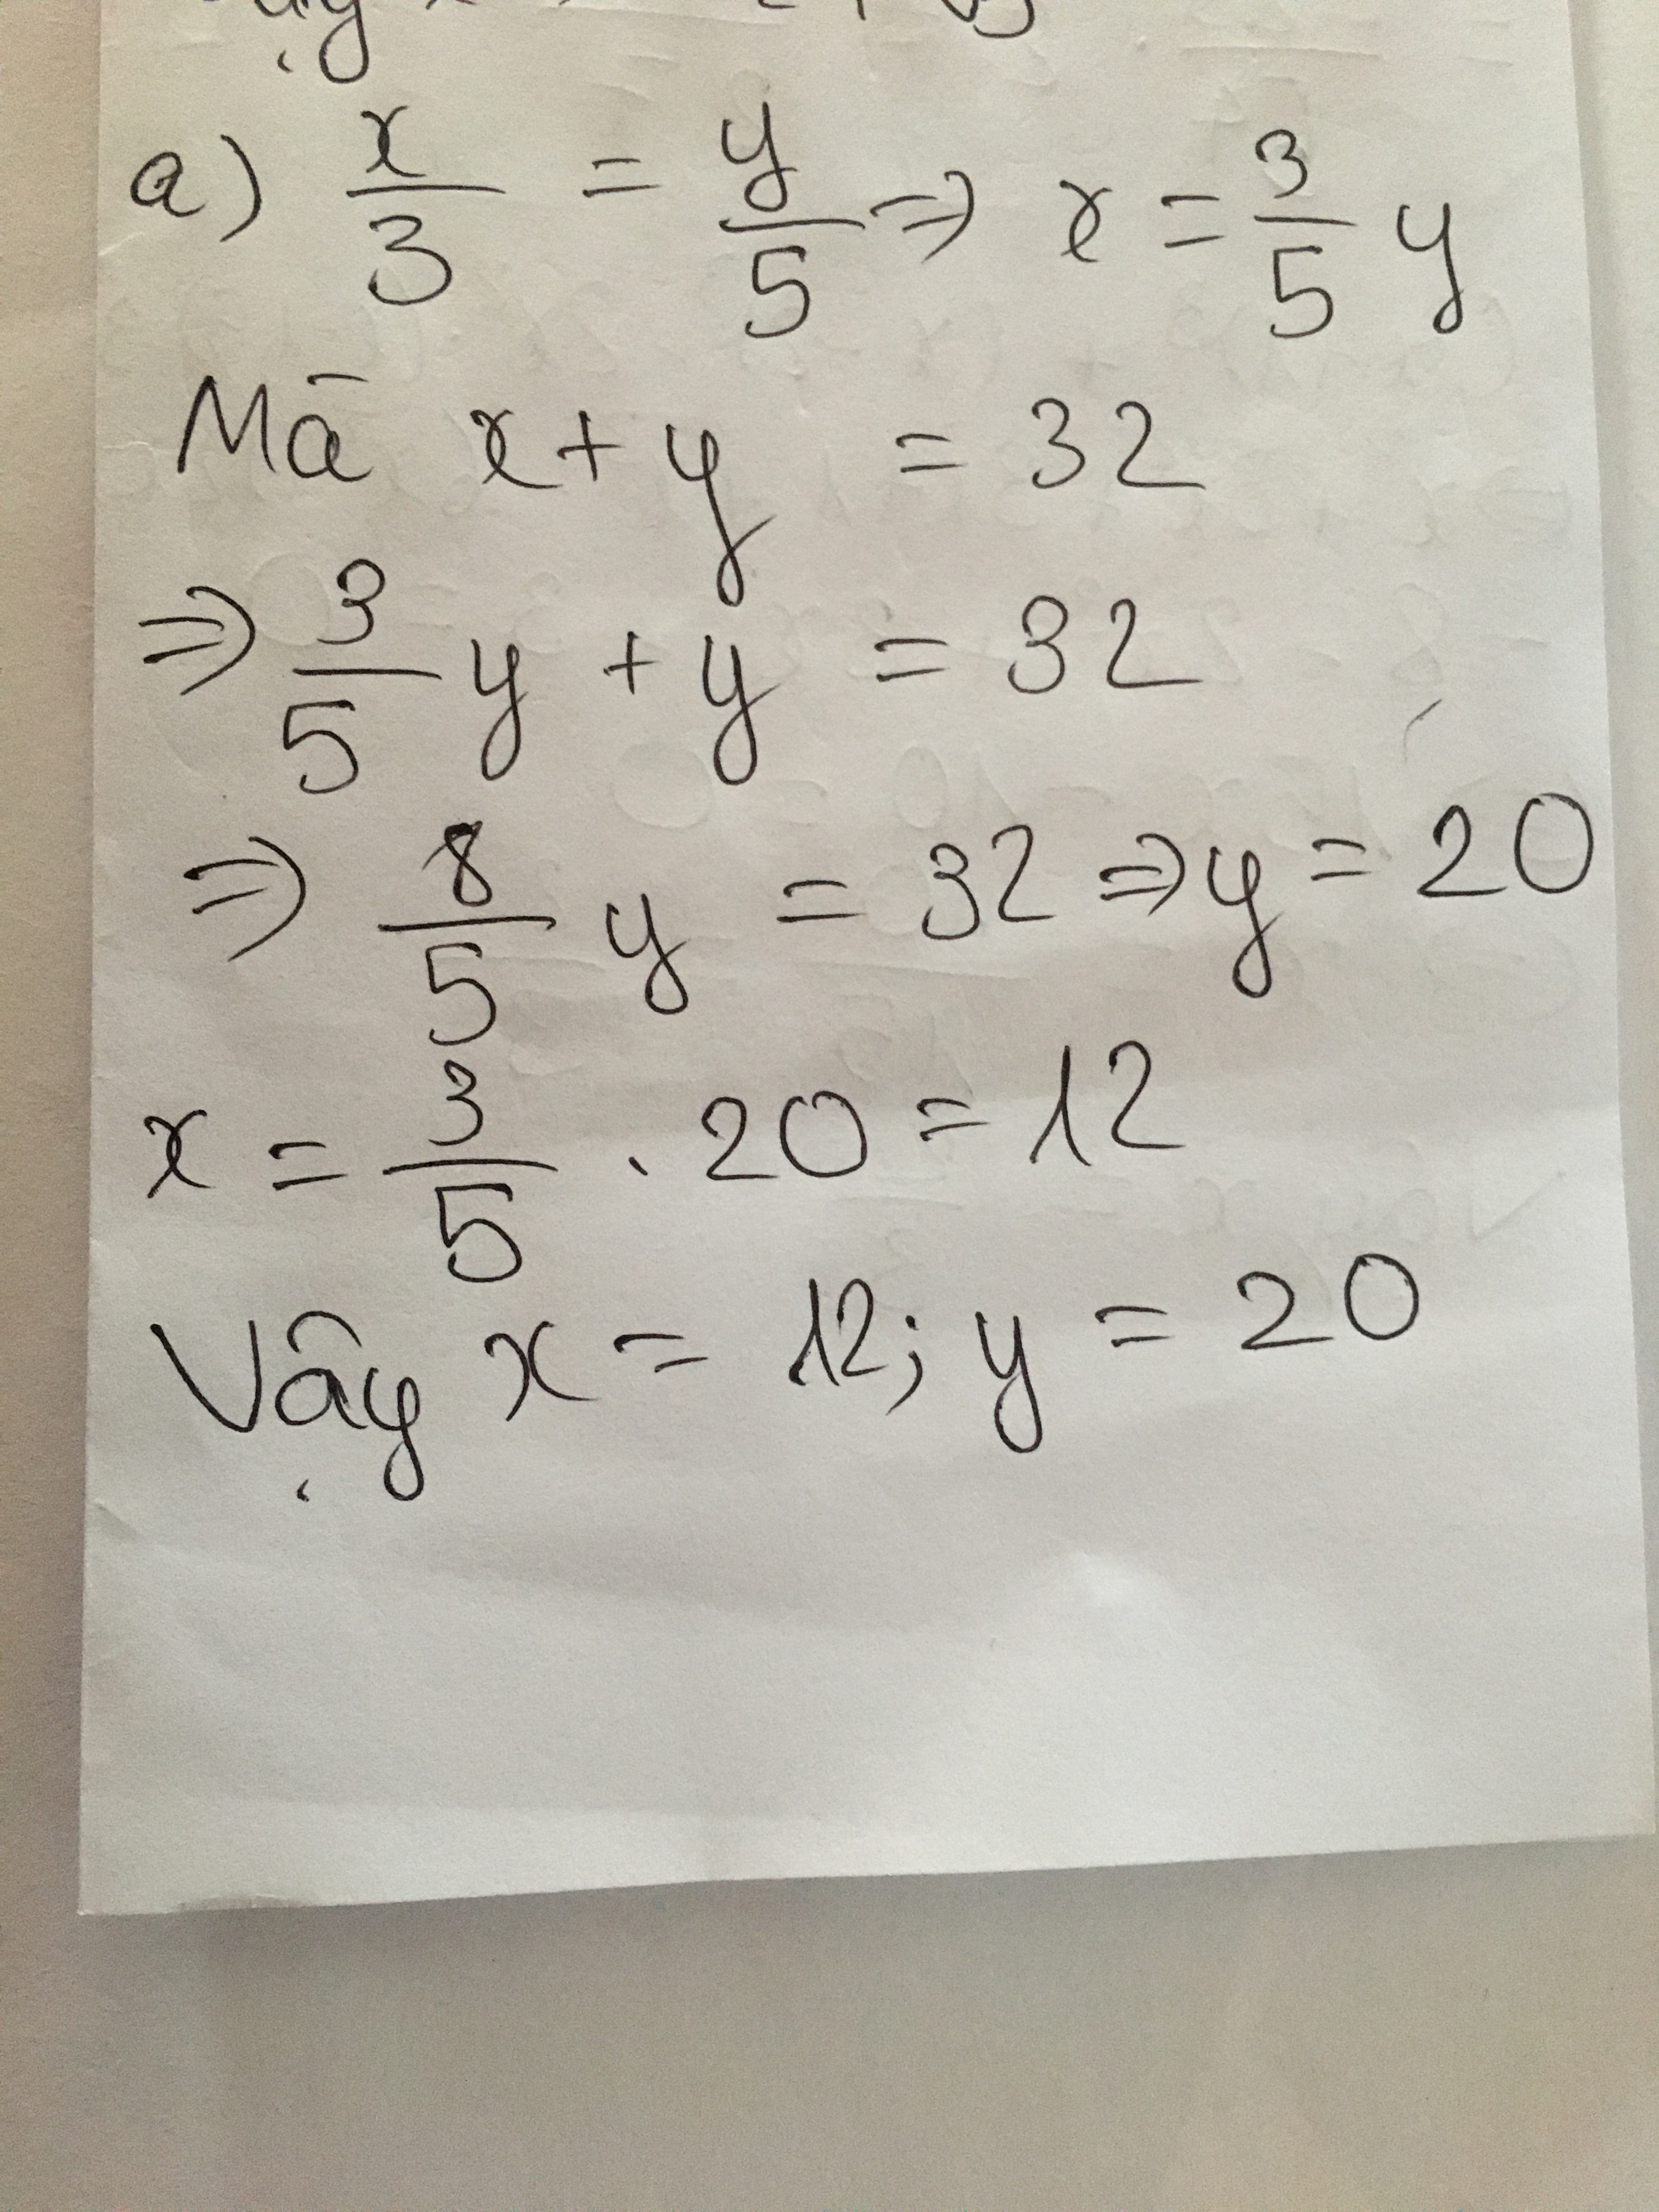 a) x/3 = y/5 => x = 3/5 y
Mà x + y = 32
=> 3/5 y + y = 32
=> 8/5 y = 32 => y = 20
x = 3/5 . 20 = 12
Vậy x = 12; y = 20